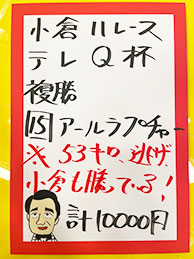 小倉11レース
テレQ杯
複勝
15アールラプチャー
※53キロ、逃げ
小倉も勝ってる!
計10000円